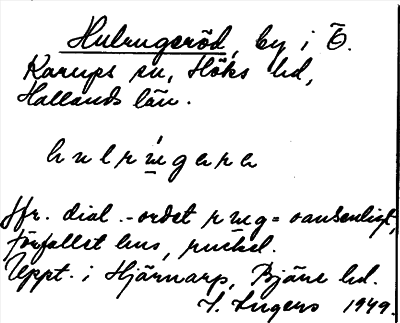 Hulrugeröd, by i Ö.
Karups sn, Höks hd,
Hallands län.
hulrugera
Jfr. dial.-ordet rug = vansenligt,
förfallet hus, ruckel.
Uppt. i Hjärnarp, Bjäre hd.
I. Ingers 1949.